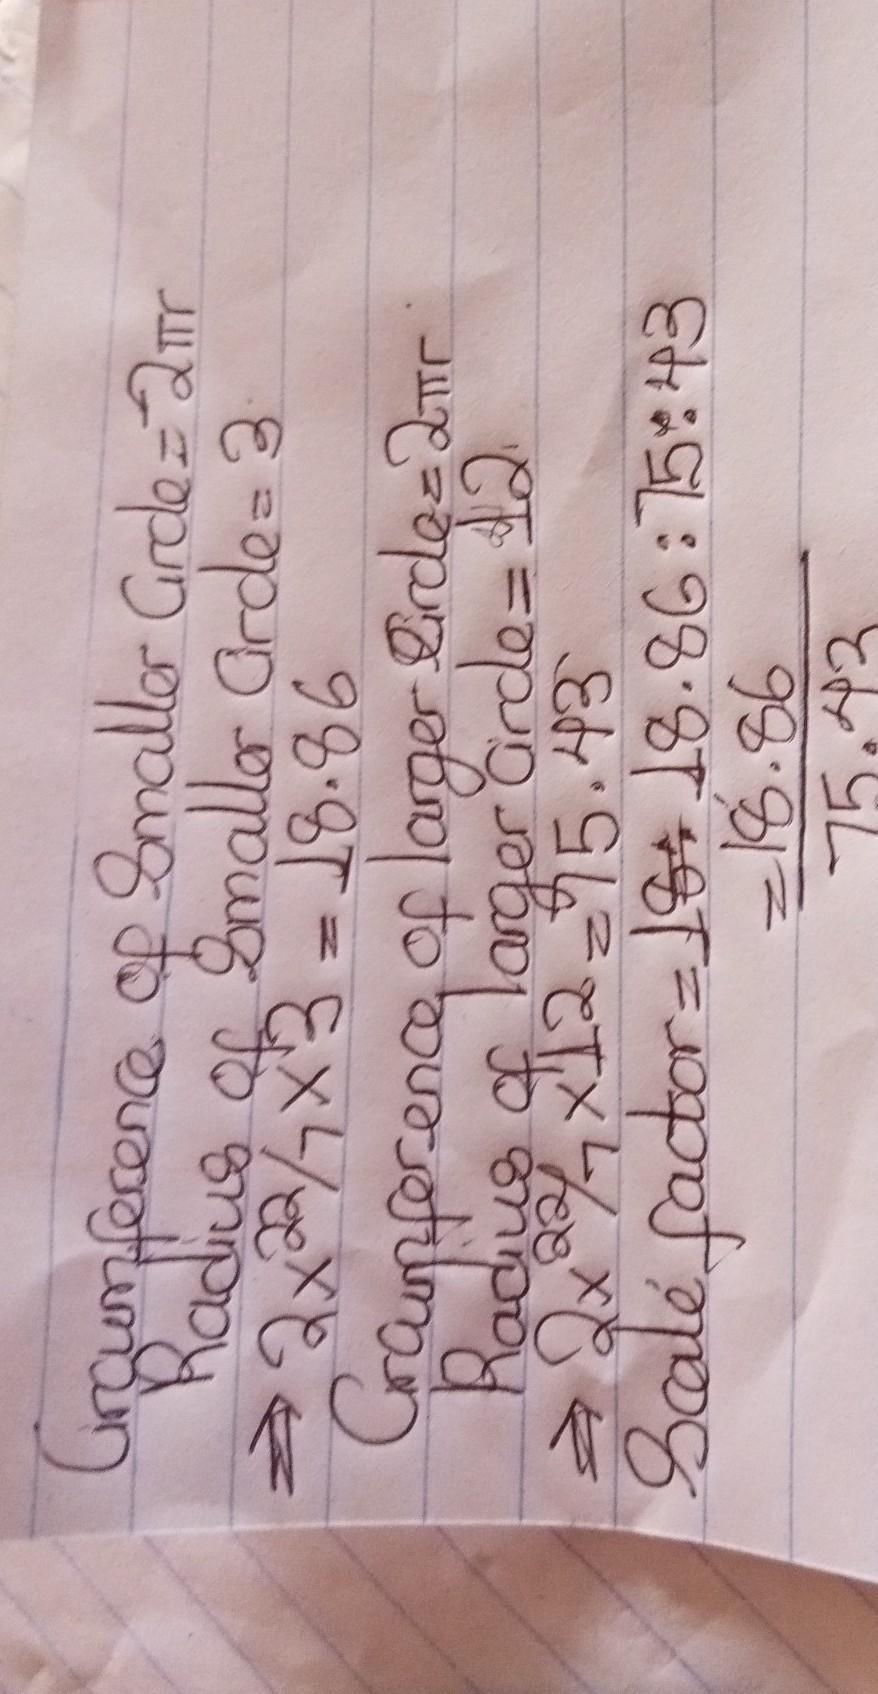 Circumference of Smaller Circle = 2πr
Radius of Smaller Circle = 3
⇒ 2x22/7 x 3 = 18.86
Circumference of larger Circle = 2πr
Radius of larger Circle = 12
⇒ 2x22/7 x 12 = 75.43
Scale factor = 18.86 : 75.43
= 18.86
75.43